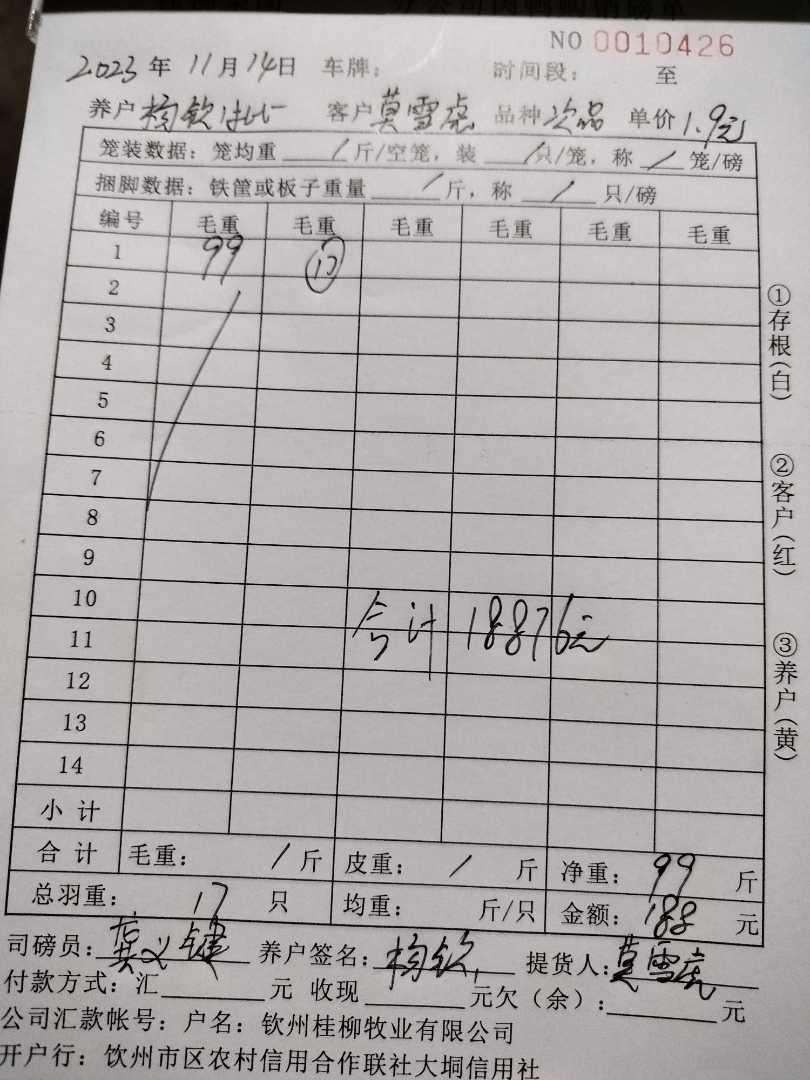 NO 0010426
2023年11月14日 车牌： 时间段： 至
养户 杨钦 客户 莫雪虎 品种 次品 单价 1.9元
笼装数据：笼均重 / 斤/空笼，装 / 只/笼，称 / 笼/磅
捆脚数据：铁筐或板子重量 / 斤，称 / 只/磅
编号 毛重 毛重 毛重 毛重 毛重 毛重
1 99 17
2
3
4
5
6
7
8
9
10
合计 18876元
11
12
13
14
小计
合计 毛重： / 斤 皮重： / 斤 净重： 99 斤
总羽重： 17 只 均重： 斤/只 金额： 188 元
司磅员： 养户签名：杨钦 提货人：莫雪虎
付款方式：汇 元 收现 元欠（余）： 元
公司汇款帐号：户名：钦州桂柳牧业有限公司
开户行：钦州市区农村信用合作联社大垌信用社
①存根（白）
②客户（红）
③养户（黄）